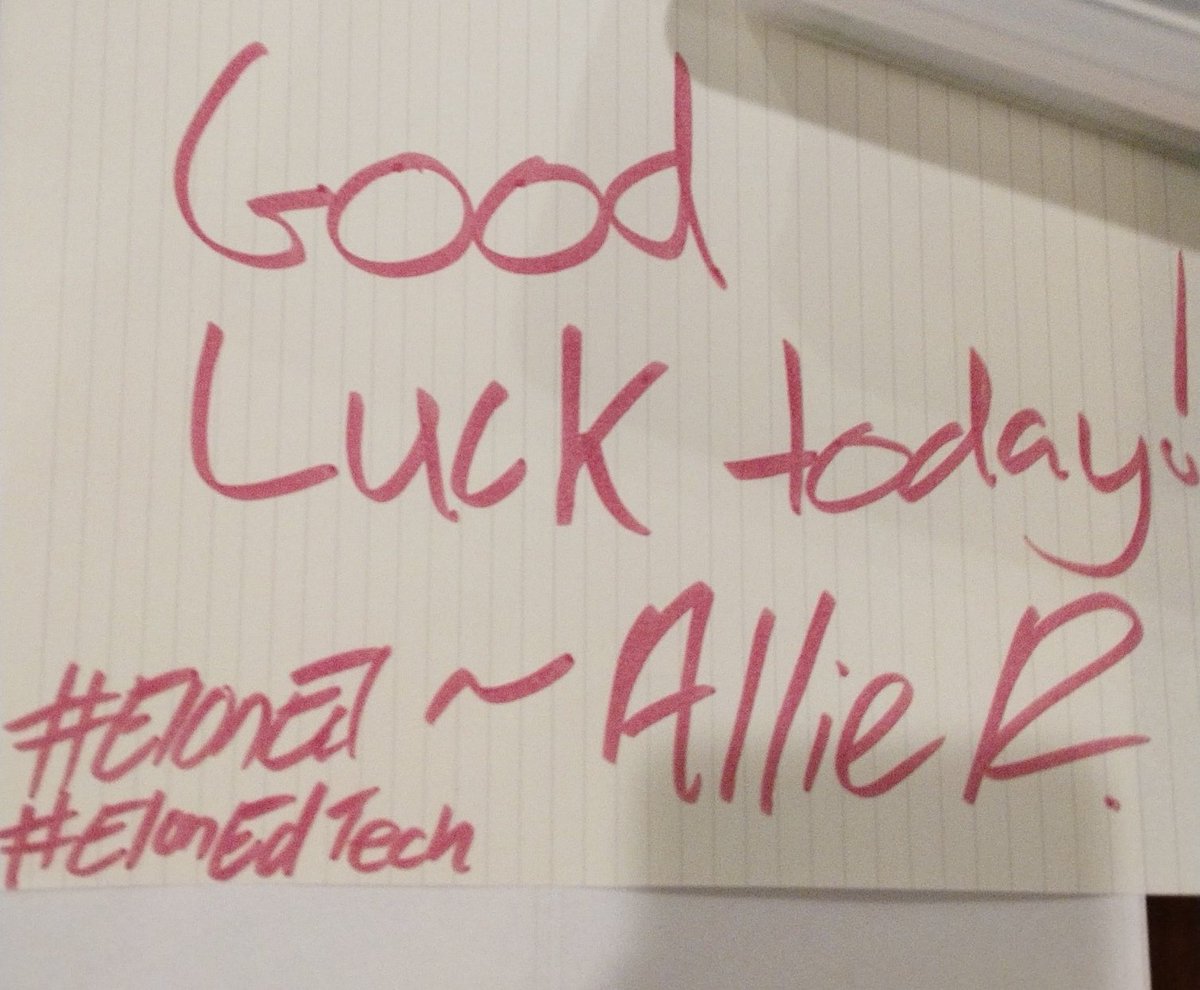 Good
Luck today!
~ Allie R.
#ElonEd
#ElonEdTech